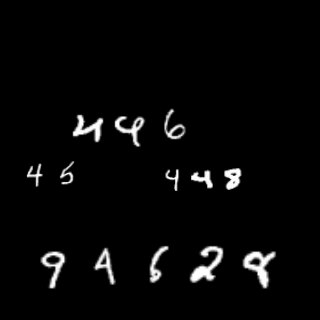 446
45 448
94628